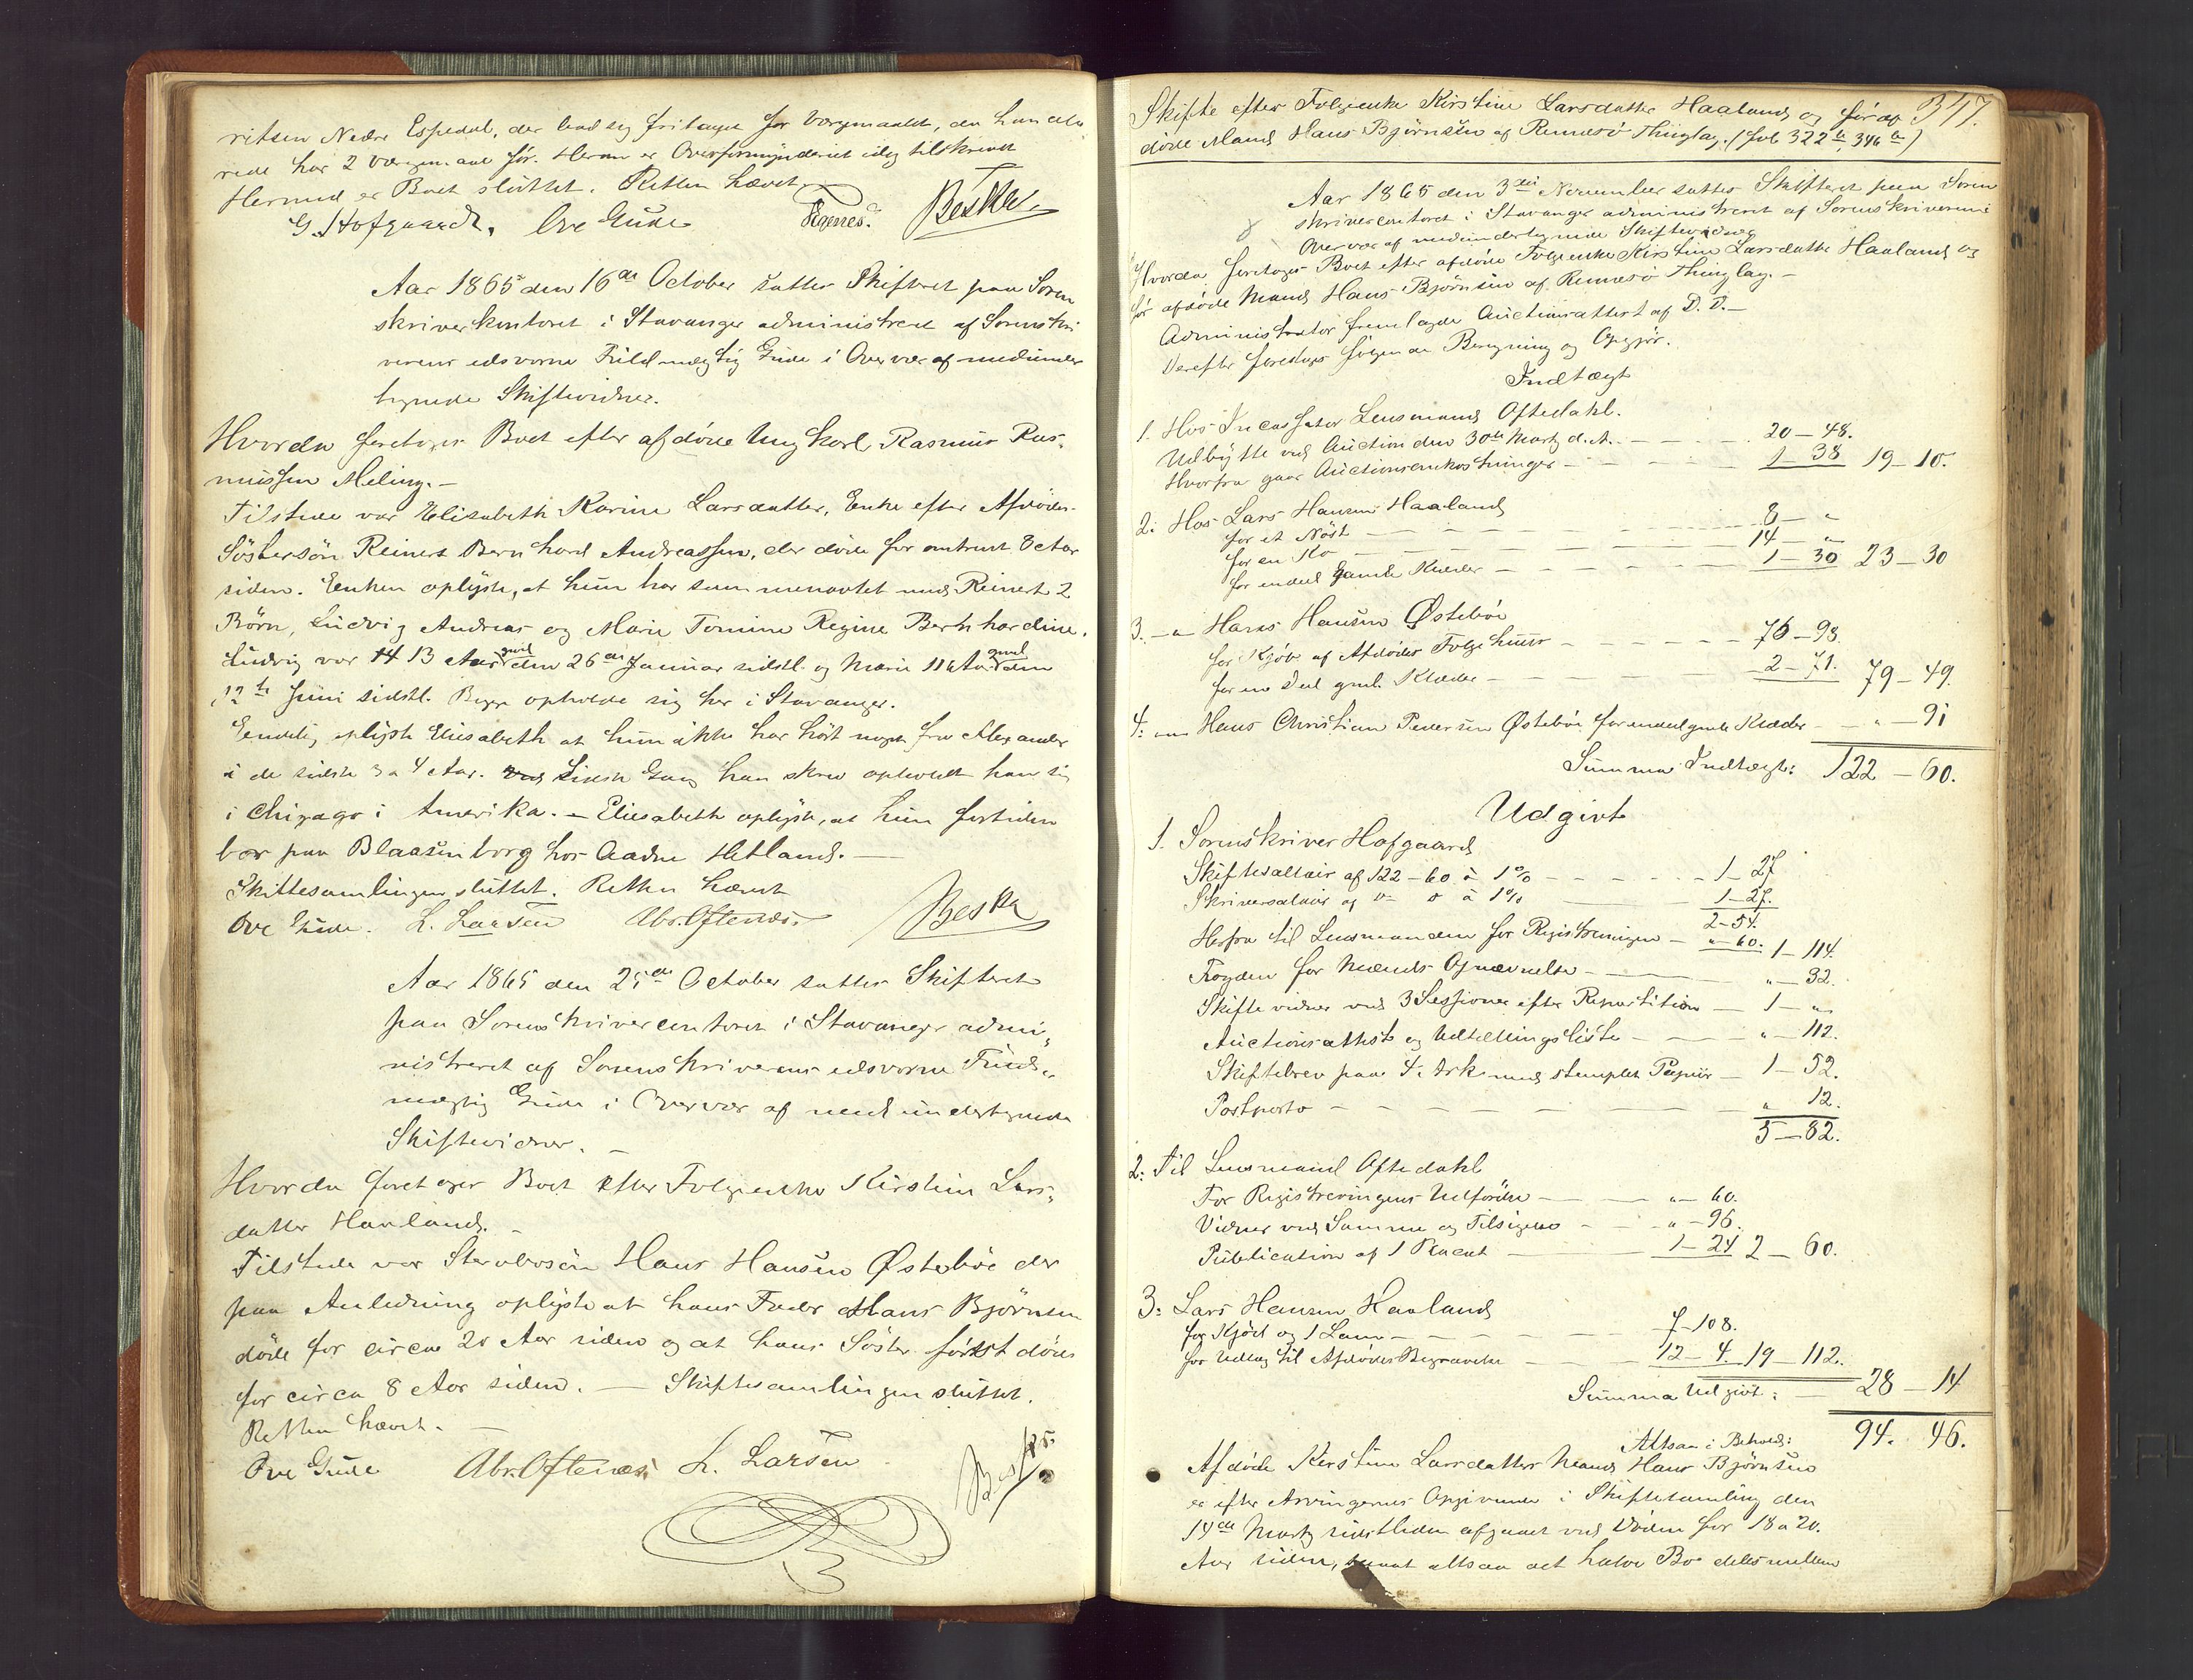 ritsen Nedre Espedal, der bad sig fritaget for Værgemaalet, da han alle
rede har 2 Værgemaal før. Herom er Overformynderiet idag tilskrevet
Hermed er Boet sluttet. Retten hævet.
G. Hofgaard. Ove Gude
Aar 1865 den 16de October sattes Skifteret paa Soren
skriverkontoret i Stavanger administreret af Sorenskri
verens edsvorne Fuldmægtig Gude i Overvær af medunder
tegnede Skiftevidner.
Hvorda foretoges Boet efter afdøde Ungkarl Rasmus Ras-
mussen Meling.-
Tilstede var Elisabeth Karine Larsdatter, Enke efter Afdødes
Søstersøn Reinert Bernhard Andreassen, der døde for omtrent 8 Aar
siden. Enken oplyste, at hun har sammenavlet med Reinert 2
Børn, Ludvig Andreas og Marie Tomine Regine Bernhardine.
Ludvig var 13 Aar gml den 26de Januar sidstl. og Marie 11 Aar gml den
12te Juni sidstl. Begge opholde sig her i Stavanger.
Eendelig oplyste Elisabeth at hun ikke har hørt noget fra Alexander
i de sidste 3 a 4 Aar. Sidste Gang han skrev opholdt han sig
i Chigago i Amerika. - Eliesabeth oplyste, at hun fortiden
bor paa Blaasenborg hos Aadne Hetland. -
Skiftesamlingen sluttet. Retten hævet
Ove Gude. L. Larsen Abr. Oftenæs.
Aar 1865 den 25de October sattes Skifteret
paa Sorenskrivercontoret i Stavanger admi-
nistreret af Sorenskriverens edsvorne Fuld-
mægtig Gude i Overvær af medundertegnede
Skiftevidner. -
Hvorda foretoges Boet efter Folgeenke Kirstine Lars-
datter Haaland. -
Tilstede var Stervbosøn Hans Hansen Østebøe der
paa Anledning oplyste at hans Fader Hans Bjørnsen
døde for circa 20 Aar siden og at hans Søster først døde
for circa 8 Aar siden. - Skiftesamlingen sluttet.
Retten hævet. -
Ove Gude Abr. Oftenæs. L. Larsen
347.
Skifte efter Folgeenke Kirstine Larsdatter Haaland og før af
døde Mand Hans Bjørnsen af Rennesø Thinglag. (fol 322te, 346te)
Aar 1865 den 3die November sattes Skifteret paa Soren
skrivercontoret i Stavanger administreret af Sorenskriveren i
Overvær af medundertegnede Skiftevidner
Hvorda foretoges Boet efter afdøde Folgeenke Kirstine Larsdatter Haaland og
før afdøde Mand Hans Bjørnsen af Rennesø Thinglag. -
Administrator fremlagde Auctionsattest af D. D. -
Derefter foretoges følgende Beregning og Opgjør.
Indtægt
1. Hos Incassator Lensmand Oftedahl.
Udbytte ved Auction den 30te Marts d. A. - 20 - 48.
Hvorfra gaar Auctionsomkostninger - 1 - 38 19 - 10.
2: Hos Lars Hansen Haaland
for et Nøst - 8 - "
for en Ko - 14 - "
for endeel gamle Klæder - 1 - 30 23 - 30
3. - " Hans Hansen Østebøe
for Kjøb af Afdødes Folgehuus - 76 - 98
for en Deel gml. Klæder - 2 - 71. 79 - 49.
4: - " Hans Christian Pedersen Østebøe for endeel gamle Klæder - " - 91
Summa Indtægt: 122 - 60.
Udgivt
1. Sorenskriver Hofgaard
Skiftesallair af 122 - 60 à 1% - 1 - 27
Skriversalair af D- o à 1% 1 - 27.
2 - 54.
Herfra til Lensmanden for Registreringen - " - 60. 1 - 114.
Fogden for Mænds Opnævnelse - " - 32.
Skiftevidner ved 3 Sessioner efter Repartition - 1 - "
Auctionsattest og Udtællingsliste - " - 112.
Skiftebrev paa 4 Ark med stemplet Papiir - 1 - 52.
Postporto - " 12.
5 - 82.
2: Til Lensmand Oftedahl
For Registreringens Udførelse - " - 60.
Vidner ved Samme og Tilsigelse - " - 96.
Publication af 1 Placat - 1 - 24 2 - 60.
3: Lars Hansen Haaland
for Kjød og 1 Lam - 7 - 108.
for Udlæg til Afdødes Begravelse - 12 - 4. 19 - 112.
Summa Udgivt: - 28 - 14
Altsaa i Behold: 94. 46.
Afdøde Kirstine Larsdatters Mand Hans Bjørnsen
er efter Arvingernes Opgivende i Skiftesamling den
14de Marts sidstleden afgaaet ved Døden for 18 a 20.
Aar siden, altsaa det halve Bo deles mellem